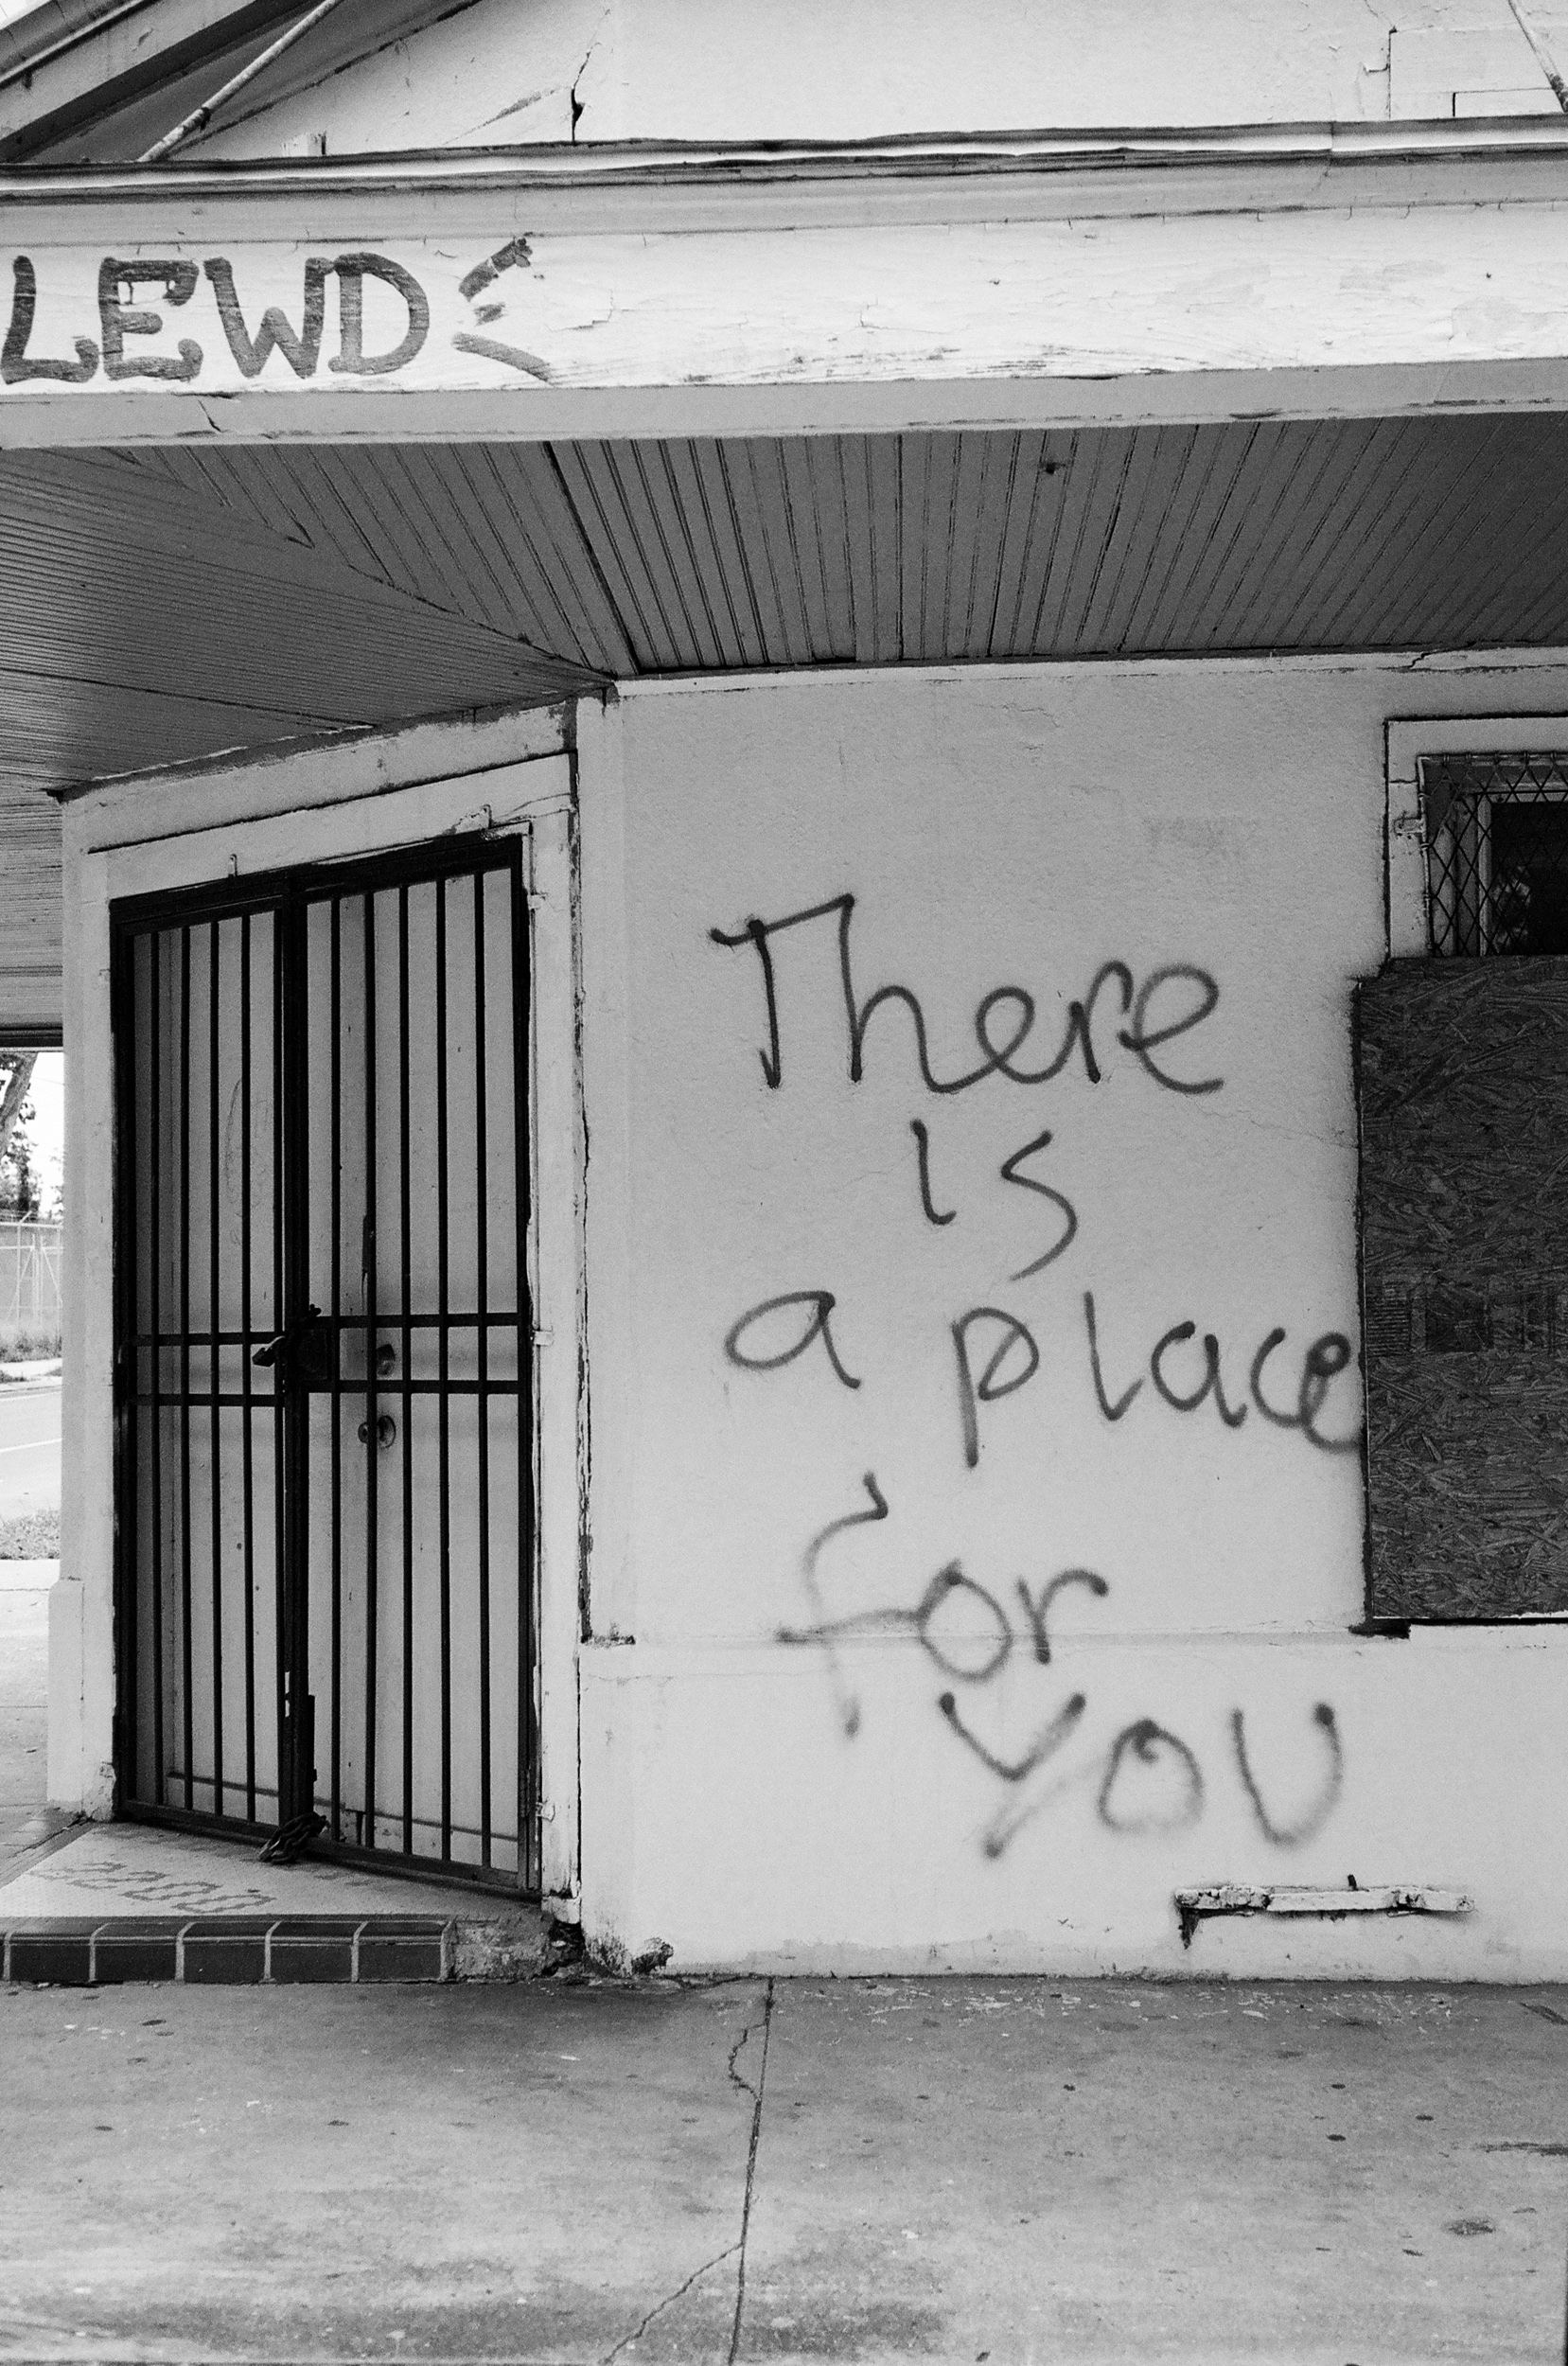 LEWD
There
is
a place
for
you
2200